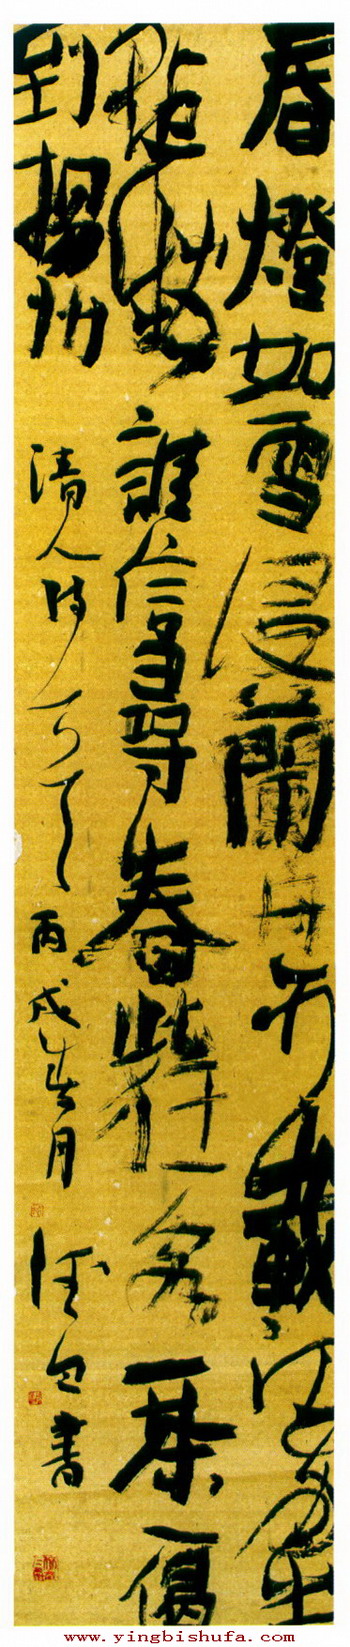 春燈如雪浸蘭舟不載江南半
點愁誰信尋春此狂客一茶一偈
到揚州
清人詩一首丙戌春月 書
www.yingbishufa.com